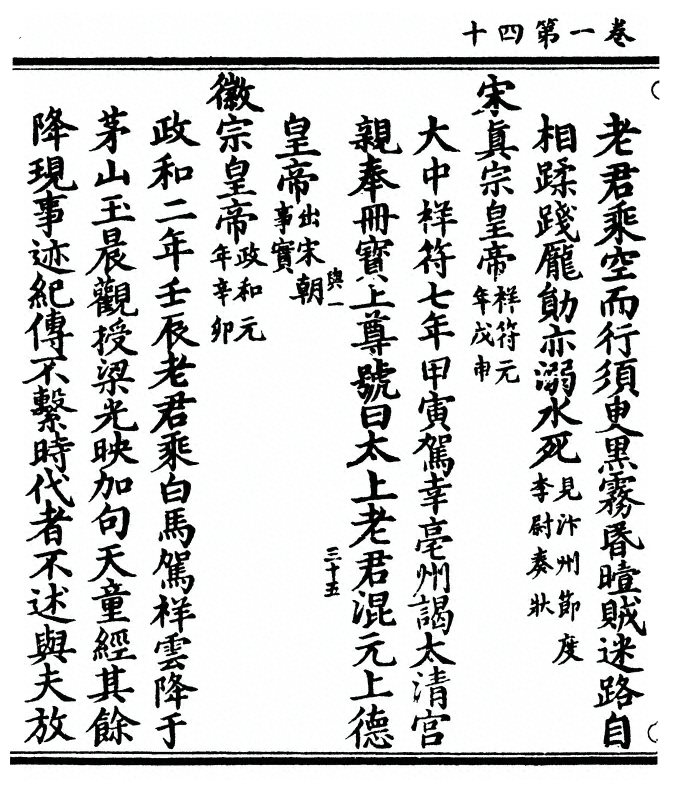 十四第一卷
老君乘空而行須臾黑霧昏曀賊迷路自
相蹂踐龎勛亦溺水死見汴州節度李尉奏狀
宋真宗皇帝祥符元年戊申
大中祥符七年甲寅駕幸亳州謁太清宫
親奉冊寶上尊號曰太上老君混元上德
與一
三十五
皇帝出宋朝事實
徽宗皇帝政和元年辛卯
政和二年壬辰老君乘白馬駕祥雲降于
茅山玉晨觀授梁光映加句天童經其餘
降現事迹紀傳不繫時代者不述與夫放